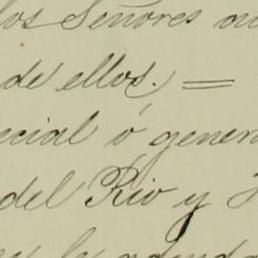 los Señores
de ellos. =
ecial ó gener
del Rio y